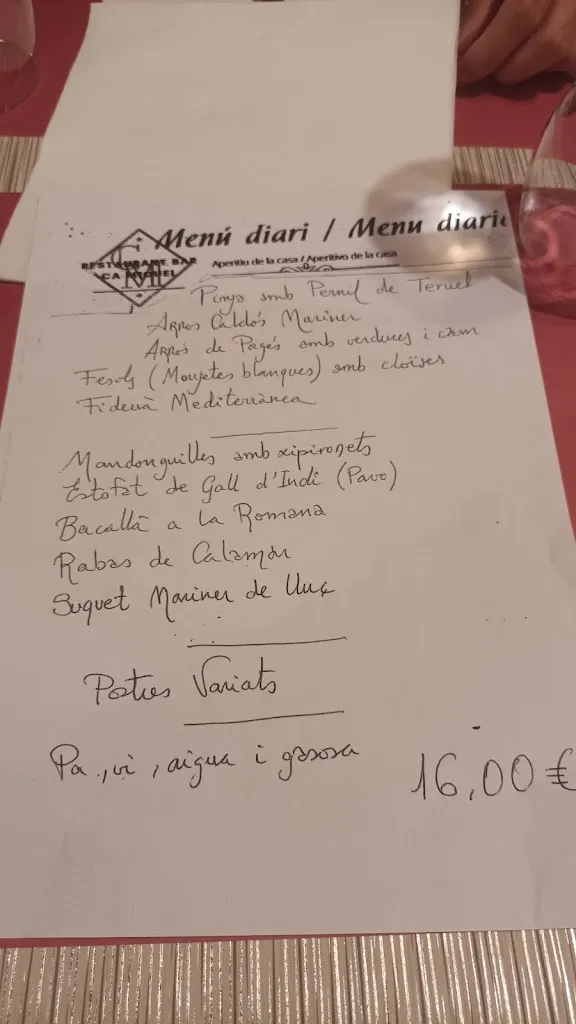 Menú diari / Menu diario
RESTAURANT BAR
CA MIQUEL
Aperitiu de la casa / Aperitivo de la casa
Pinya amb Pernil de Teruel
Arros Caldós Mariner
Arròs de Pagés amb verdures i carn
Fesols (Monjetes blanques) amb cloïses
Fideuà Mediterrànea
Mandonguilles amb xipironets
Estofat de Gall d'Indi (Pavo)
Bacallà a la Romana
Rabas de Calamar
Suquet Mariner de Lluç
Postres Variats
Pa, vi, aigua i gasosa
16,00 €